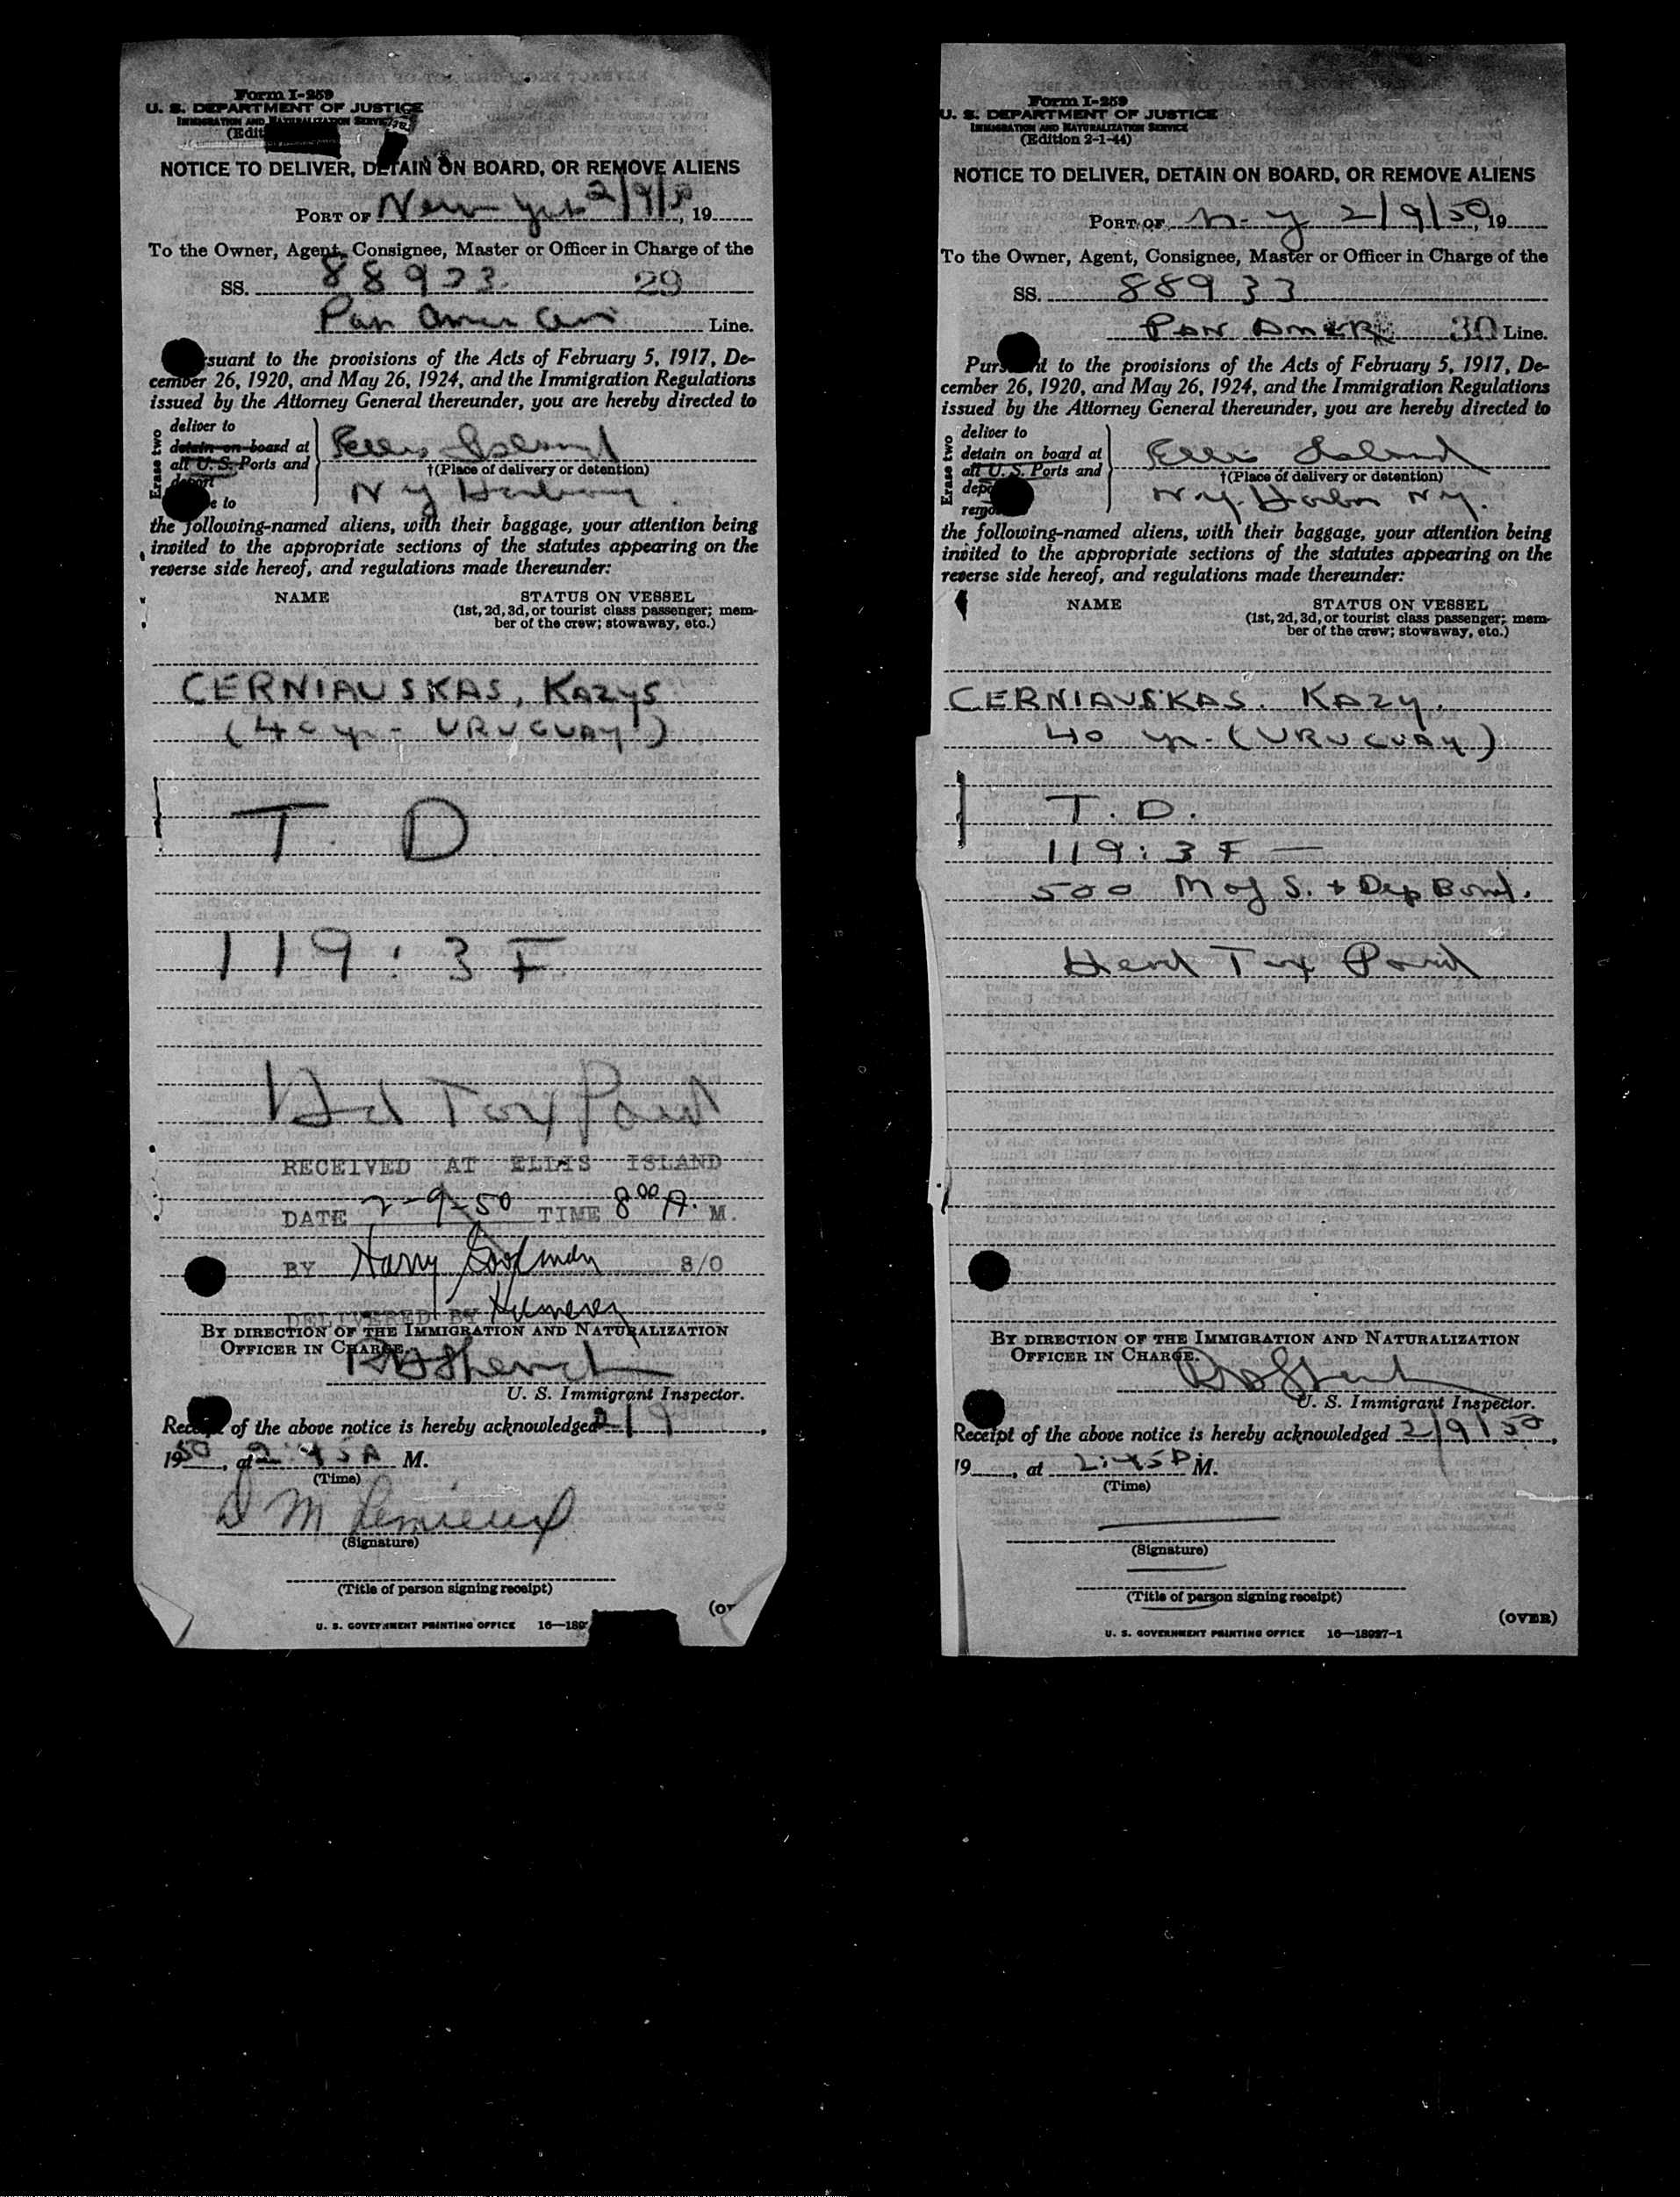 Form I-259
U. S. DEPARTMENT OF JUSTICE
IMMIGRATION AND NATURALIZATION SERVICE
(Edit
NOTICE TO DELIVER, DETAIN ON BOARD, OR REMOVE ALIENS
PORT OF New York 2/9/50, 19
To the Owner, Agent, Consignee, Master or Officer in Charge of the
SS. 88933 29
Pan American Line.
suant to the provisions of the Acts of February 5, 1917, De-
cember 26, 1920, and May 26, 1924, and the Immigration Regulations
issued by the Attorney General thereunder, you are hereby directed to
Erase two
deliver to
detain on board at
all U. S. Ports and
deport
e to
Ellis Island
†(Place of delivery or detention)
N Y Harbor
the following-named aliens, with their baggage, your attention being
invited to the appropriate sections of the statutes appearing on the
reverse side hereof, and regulations made thereunder:
NAME STATUS ON VESSEL
(1st, 2d, 3d, or tourist class passenger; mem-
ber of the crew; stowaway, etc.)
CERNIAUSKAS, KAZYS
(40 yr - URUGUAY)
T. D
119:3 F
Hd Tax Paid
RECEIVED AT ELLIS ISLAND
DATE 2-9-50 TIME 8 00 A. M.
BY Harry Goodman S/O
DELIVERED BY
BY DIRECTION OF THE IMMIGRATION AND NATURALIZATION
OFFICER IN CHARGE.
U. S. Immigrant Inspector.
Receipt of the above notice is hereby acknowledged 2/9,
1950, at 2:45 A M.
(Time)
D M Lemieux
(Signature)
(Title of person signing receipt)
(OV
U. S. GOVERNMENT PRINTING OFFICE 16—189
Form I-259
U. S. DEPARTMENT OF JUSTICE
IMMIGRATION AND NATURALIZATION SERVICE
(Edition 2-1-44)
NOTICE TO DELIVER, DETAIN ON BOARD, OR REMOVE ALIENS
PORT OF N.Y 2/9/50, 19
To the Owner, Agent, Consignee, Master or Officer in Charge of the
SS. 88933
PAN AMER 30 Line.
Purs nt to the provisions of the Acts of February 5, 1917, De-
cember 26, 1920, and May 26, 1924, and the Immigration Regulations
issued by the Attorney General thereunder, you are hereby directed to
Erase two
deliver to
detain on board at
all U. S. Ports and
depo
remo
Ellis Island
†(Place of delivery or detention)
N.Y. Harbor N.Y.
the following-named aliens, with their baggage, your attention being
invited to the appropriate sections of the statutes appearing on the
reverse side hereof, and regulations made thereunder:
NAME STATUS ON VESSEL
(1st, 2d, 3d, or tourist class passenger; mem-
ber of the crew; stowaway, etc.)
CERNIAUSKAS. KAZY.
40 yr. (URUGUAY)
T. D.
119:3 F —
500 M of S. + Dep Bond.
Head Tax Paid
BY DIRECTION OF THE IMMIGRATION AND NATURALIZATION
OFFICER IN CHARGE.
U. S. Immigrant Inspector.
Receipt of the above notice is hereby acknowledged 2/9/50,
19, at 2:45 A M.
(Time)
(Signature)
(Title of person signing receipt)
(OVER)
U. S. GOVERNMENT PRINTING OFFICE 16—18027-1